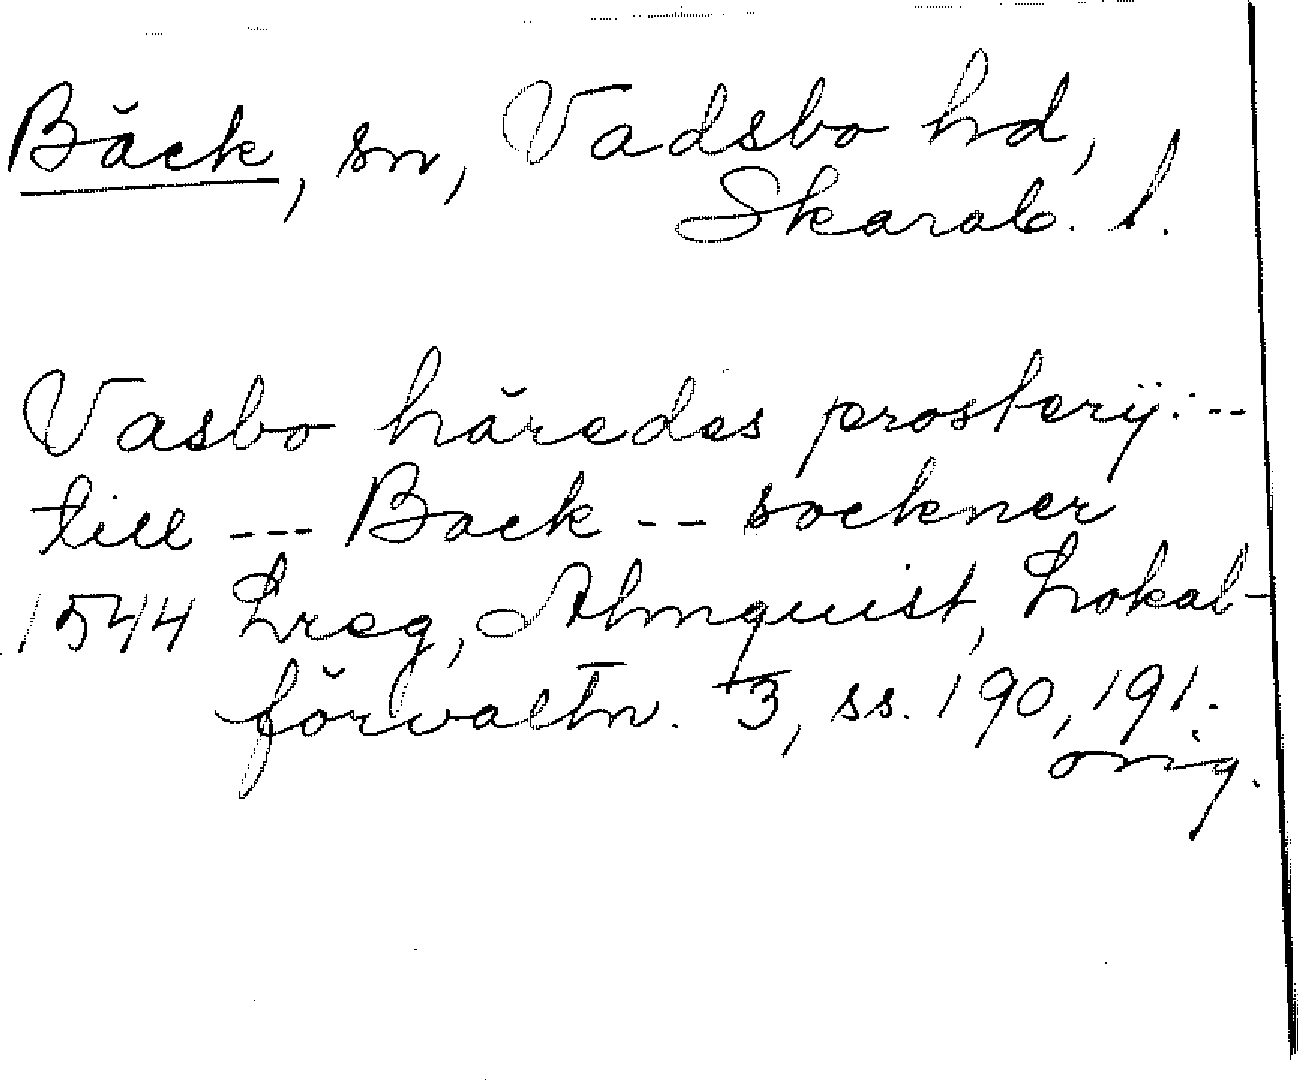 Bäck, sn, Vadsbo hd,
Skarab. l.
Vasbo häredes prosterÿ: --
till --- Back -- sockner
1544 Lreg, Almquist, Lokal-
förvaltn. 3, ss. 190, 191.
orig.